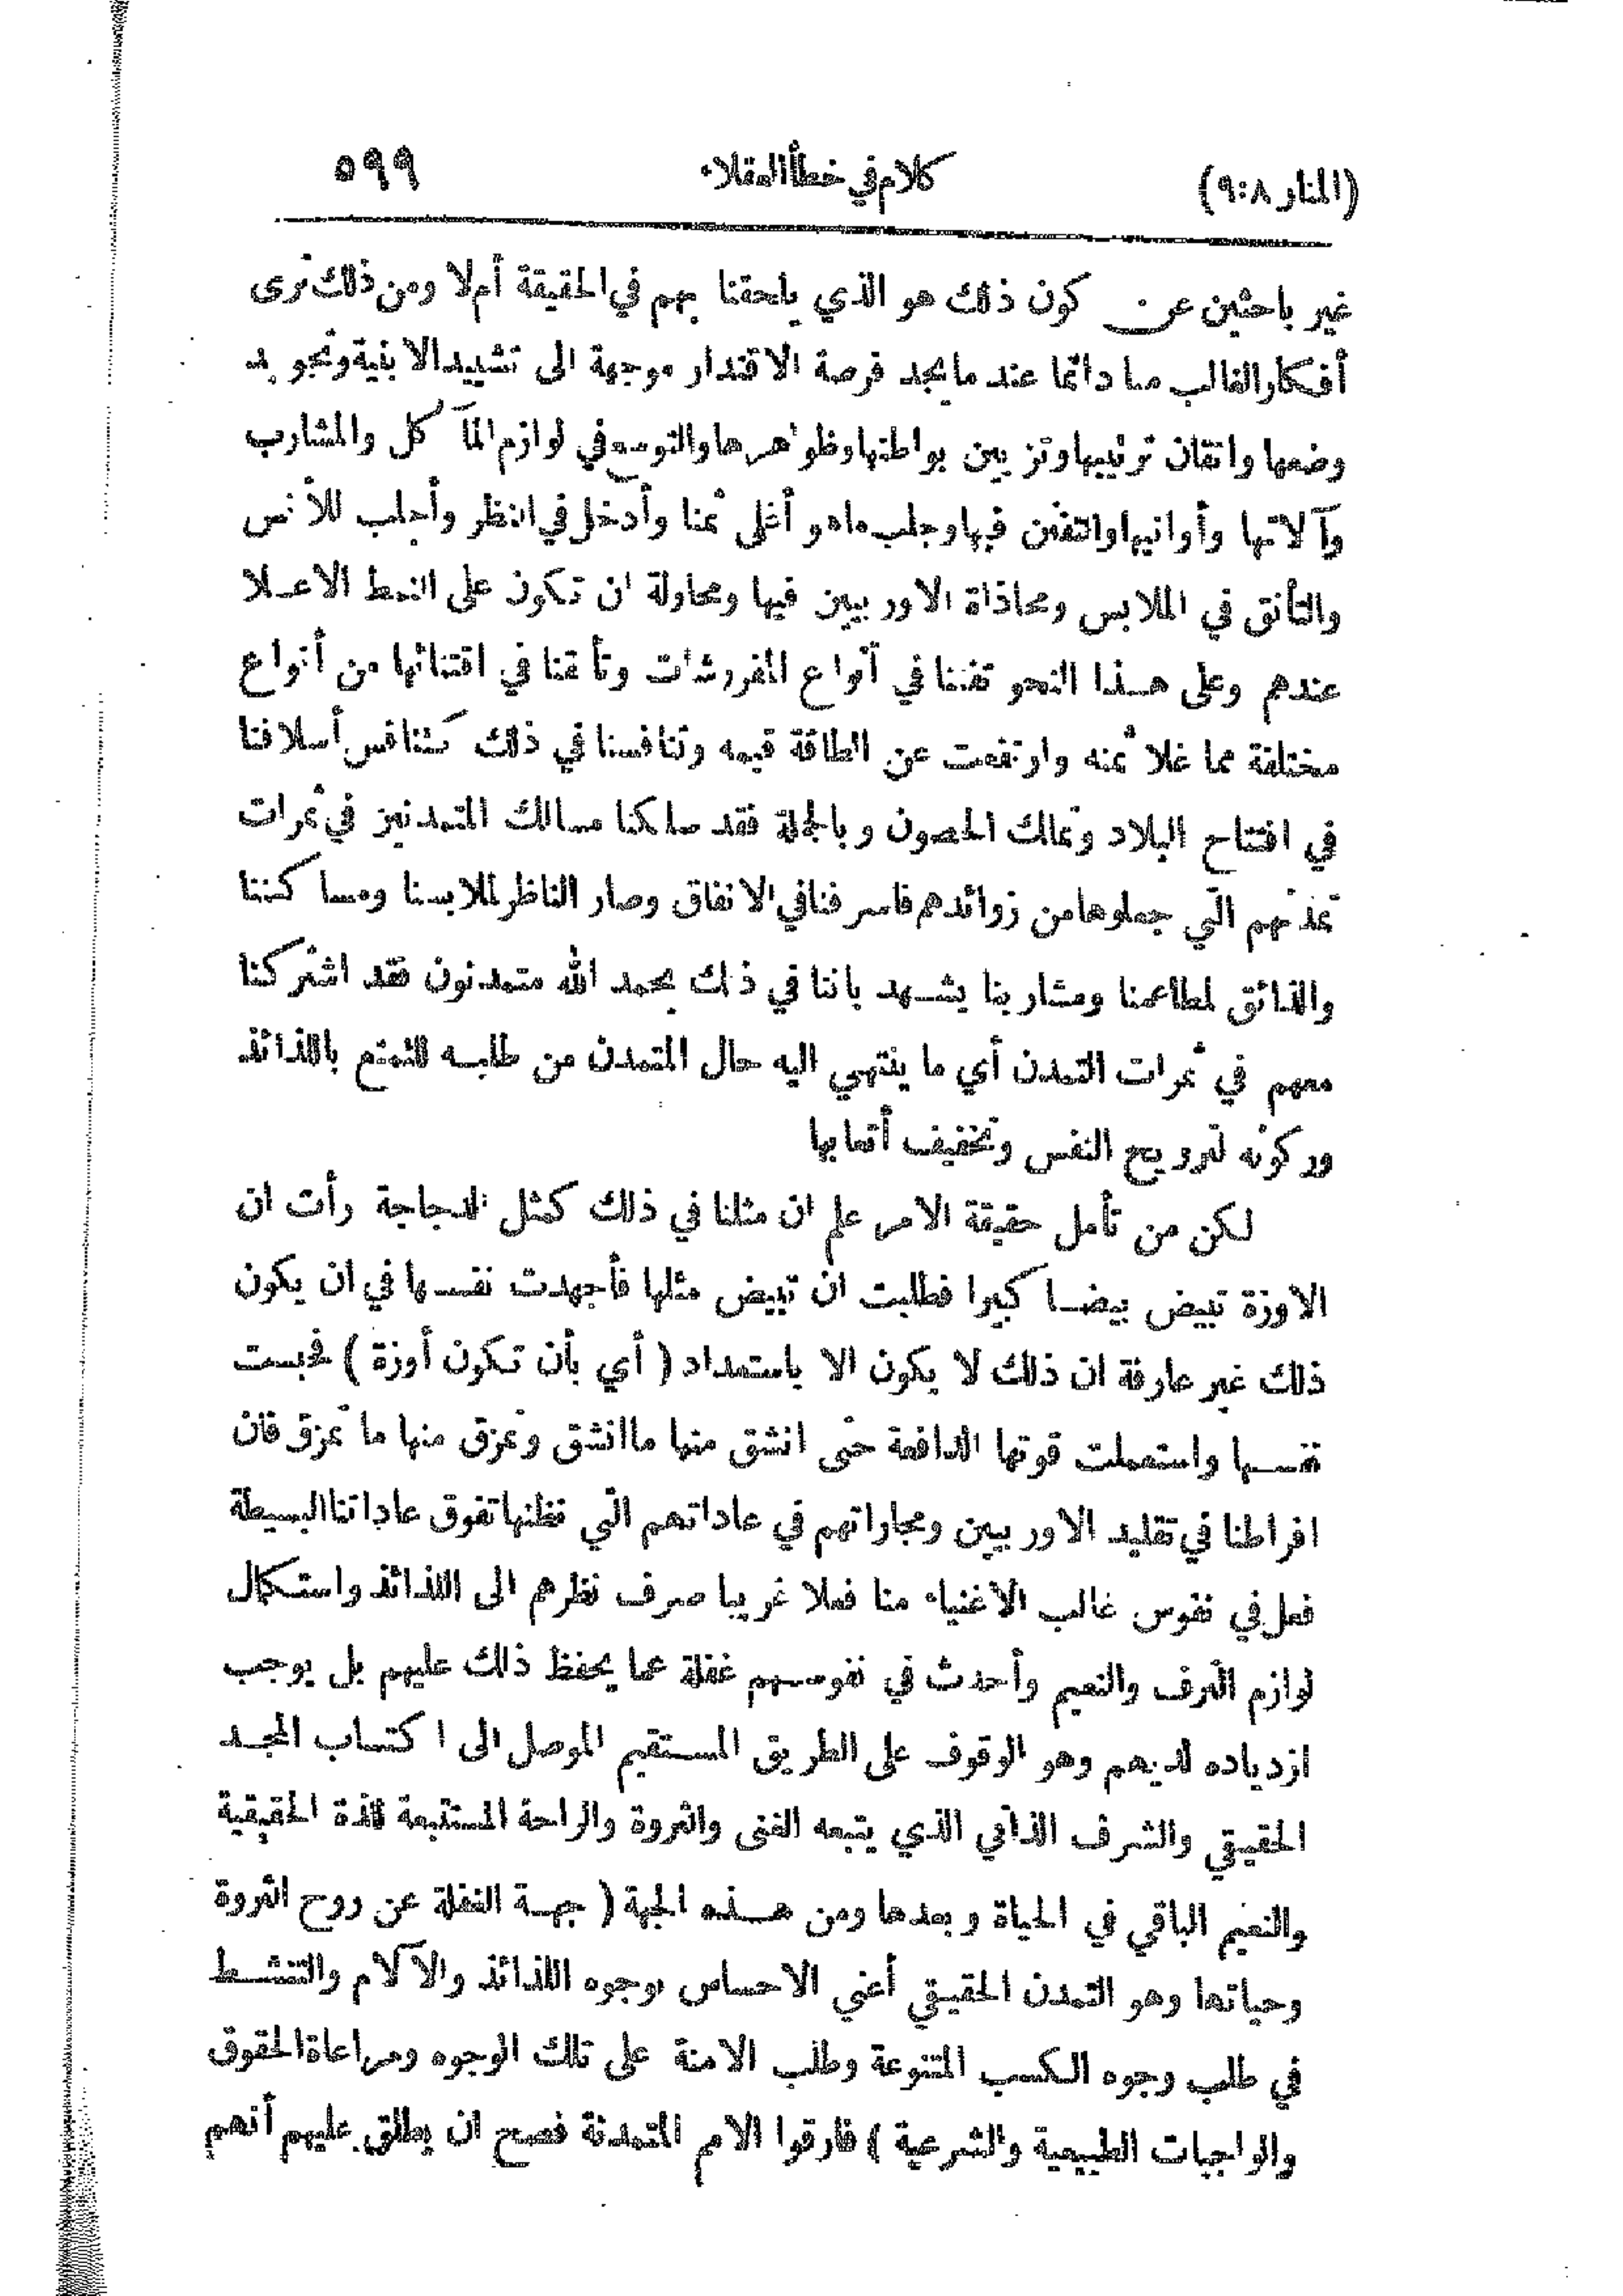 (المنار ٨:٩) كلام في خطأ العقلاء ٥٩٩
غير باحثين عن كون ذلك هو الذي يلحقنا بهم في الحقيقة أم لا ومن ذلك نرى
أفكار الغالب منا دائما عند ما يجد فرصة الاقتدار موجهة الى تشييد الابنية وتجويد
وضعها واتقان ترتيبها وتزيين بواطنها وظواهرها والتوسع في لوازم المآكل والمشارب
وآلاتها وأوانيها والتفنن فيها وجلب ماهو أغلى ثمنا وأدخل في النظر وأجلب للأنس
والتأنق في الملابس ومحاذاة الاوربيين فيها ومحاولة ان تكون على النمط الاعلا
عندهم وعلى هذا النحو تفننا في أنواع المفروشات وتأنقنا في اقتنائها من أنواع
مختلفة مما غلا ثمنه وارتفعت عن الطاقة قيمه وتنافسنا في ذلك كتنافس أسلافنا
في افتتاح البلاد وتملك الحصون وبالجملة فقد سلكنا مسالك المتمدنين في ثمرات
تمدنهم التي جعلوها من زوائدهم فاسرفنا في الانفاق وصار الناظر لملابسنا ومساكننا
والذائق لمطاعمنا ومشاربنا يشهد باننا في ذلك بحمد الله متمدنون فقد اشتركنا
معهم في ثمرات التمدن أي ما ينتهي اليه حال المتمدن من طلبه للتمتع باللذائذ
وركونه لترويح النفس وتخفيف أتعابها
لكن من تأمل حقيقة الامر علم ان مثلنا في ذلك كمثل الدجاجة رأت ان
الاوزة تبيض بيضا كبيرا فطلبت ان تبيض مثلها فأجهدت نفسها في ان يكون
ذلك غير عارفة ان ذلك لا يكون الا باستعداد ( أي بأن تكون أوزة ) فحبست
نفسها واستعملت قوتها الدافعة حتى انشق منها ماانشق وتمزق منها ما تمزق فان
افراطنا في تقليد الاوربيين ومجاراتهم في عاداتهم التي نظنها تفوق عاداتنا البسيطة
فعل في نفوس غالب الاغنياء منا فعلا غريبا صرف نظرهم الى اللذائذ واستكمال
لوازم الترف والنعيم وأحدث في نفوسهم غفلة عما يحفظ ذلك عليهم بل يوجب
ازدياده لديهم وهو الوقوف على الطريق المستقيم الموصل الى اكتساب المجد
الحقيقي والشرف الذاتي الذي يتبعه الغنى والثروة والراحة المستتبعة للذة الحقيقية
والنعيم الباقي في الحياة وبعدها ومن هذه الجهة ( جهة الغفلة عن روح الثروة
وحياتها وهو التمدن الحقيقي أعني الاحساس بوجوه اللذائذ والآلام والتنشط
في طلب وجوه الكسب المتنوعة وطلب الامنة على تلك الوجوه ومراعاة الحقوق
والواجبات الطبيعية والشرعية ) فارقوا الامم المتمدنة فصح ان يطلق عليهم أنهم